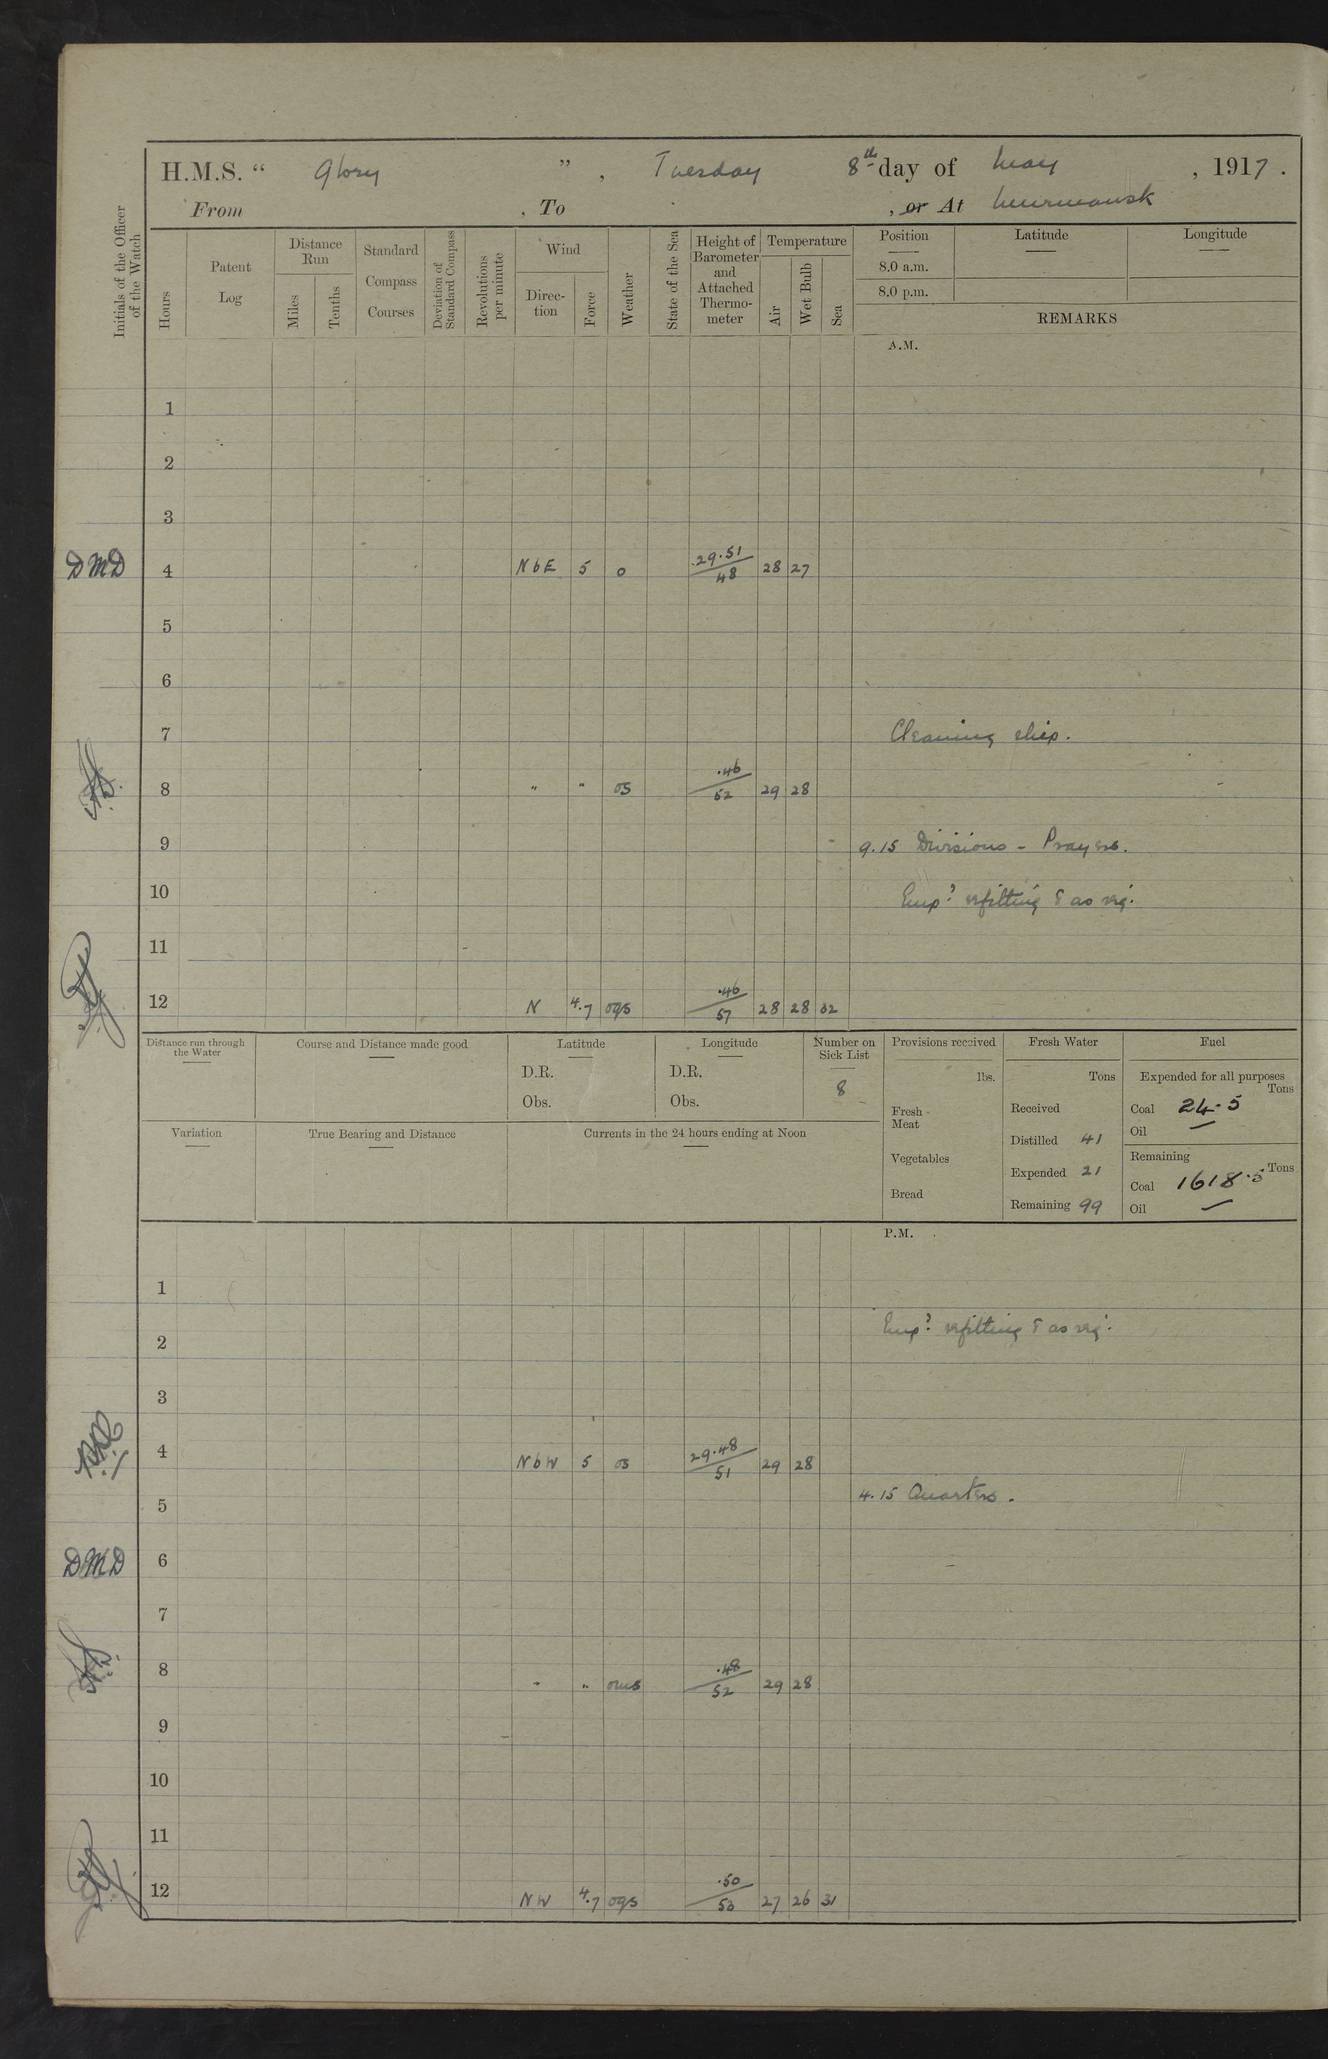 H.M.S. “ Glory ” , Tuesday 8th day of May , 1917 .
From , To , or At Murmansk
Initials of the Officer of the Watch
Hours
Patent Log
Distance Run
Miles
Tenths
Standard Compass Courses
Deviation of Standard Compass
Revolutions per minute
Wind
Direc-tion
Force
Weather
State of the Sea
Height of Barometer and Attached Thermo-meter
Temperature
Air
Wet Bulb
Sea
Position Latitude Longitude
8.0 a.m.
8.0 p.m.
REMARKS
A.M.
1
2
3
DMD 4 N b E 5 o 29.51/48 28 27
5
6
7 Cleaning ship.
8 " " os .46/52 29 28
9 9.15 Divisions – Prayers.
10 Empd refitting & as req.
11
12 N 4.7 oqs .46/57 28 28 32
Distance run through the Water
Course and Distance made good
Latitude
D.R.
Obs.
Longitude
D.R.
Obs.
Number on Sick List
8
Provisions received
lbs.
Fresh Meat
Vegetables
Bread
Fresh Water
Tons
Received
Distilled 41
Expended 21
Remaining 99
Fuel
Expended for all purposes
Tons
Coal 24.5
Oil —
Remaining
Tons
Coal 1618.5
Oil —
Variation
True Bearing and Distance
Currents in the 24 hours ending at Noon
P.M.
1
Empd refitting & as req.
2
3
4 N b W 5 os 29.48/51 29 28
4.15 Quarters.
5
DMD 6
7
8 " " oms .48/52 29 28
9
10
11
12 NW 4.7 oqs .50/53 27 26 31